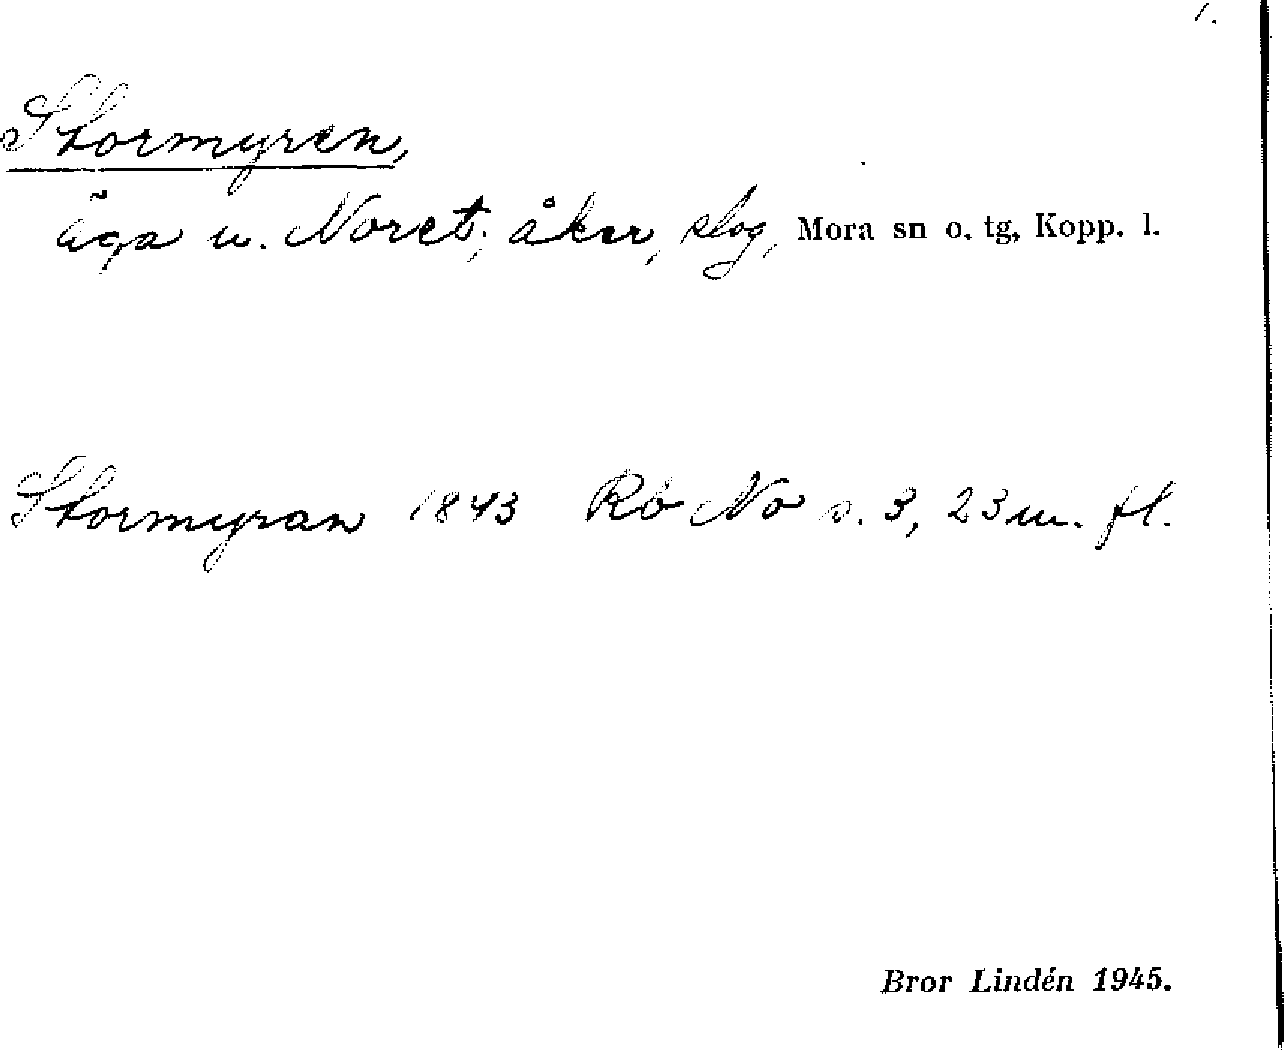 1.
Stormyren,
äga u. Noret; åker, slog, Mora sn o. tg, Kopp. l.
Stormyran 1843 Rö No s. 3, 23 m. fl.
Bror Lindén 1945.